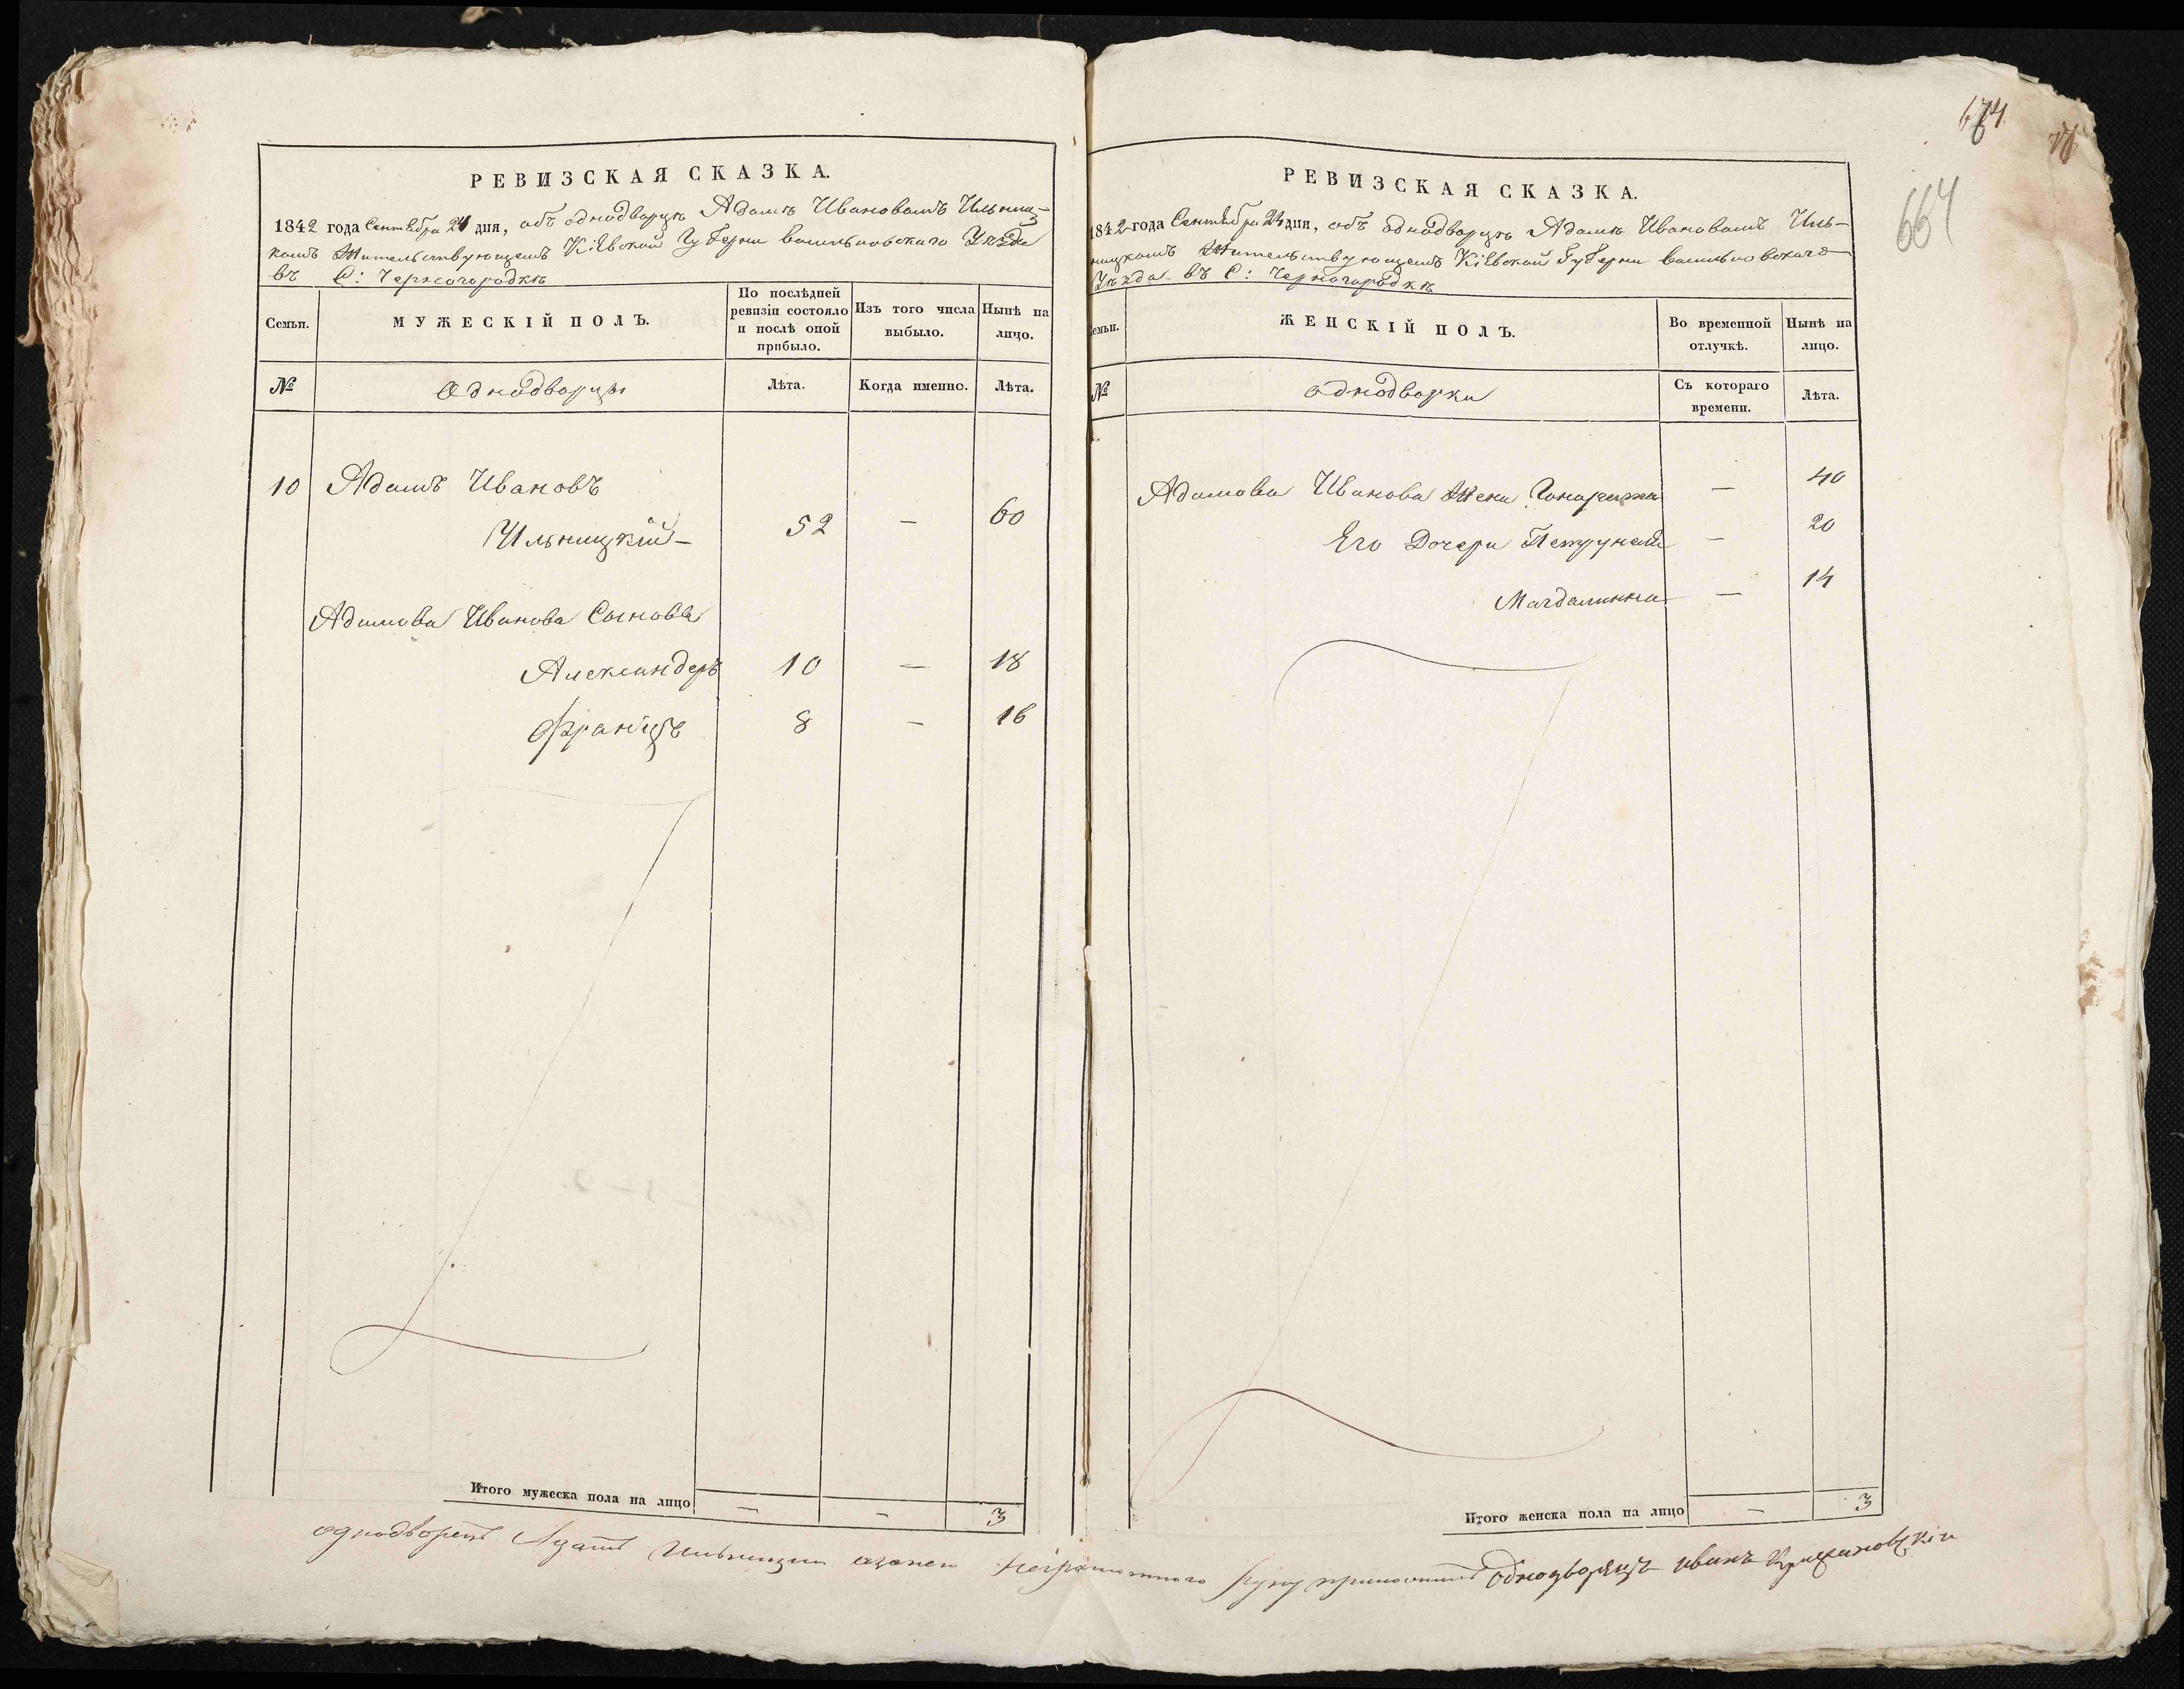 РЕВИЗСКАЯ СКАЗКА.
1842 года Сентября 24 дня, объ однодворцѣ Адамѣ Ивановомъ Ильниц-
комъ Жительствующемъ Кіевской Губерни васильковскаго Уѣзда
въ С: Черногородкѣ
Семьи.
МУЖЕСКІЙ ПОЛЪ.
По послѣдней
ревизіи состояло
и послѣ оной
прибыло.
Изъ того числа
выбыло.
Нынѣ на
лицо.
№
Однодворцы
Лѣта.
Когда именно.
Лѣта.
10 Адамъ Ивановъ
Ильницкій – 52 — 60
Адамова Иванова Сыновья
Александеръ 10 — 18
Францъ 8 — 16
Итого мужеска пола на лицо — — 3
674
664
РЕВИЗСКАЯ СКАЗКА.
1842 года Сентября 24 дня, объ однодворцѣ Адамѣ Ивановомъ Иль-
ницкомъ Жительствующемъ Кіевской Губерни васильковскаго
Уѣзда въ С: Черногородкѣ
Семьи.
ЖЕНСКІЙ ПОЛЪ.
Во временной
отлучкѣ.
Нынѣ на
лицо.
№
однодворки
Съ котораго
времени.
Лѣта.
Адамова Иванова Жена — 40
Его Дочери Петрунеля — 20
Магдалинна — 14
Итого женска пола на лицо — 3
однодворецъ Адамъ Ильницки азанего неграмотного руку приложилъ Однодворецъ иванъ